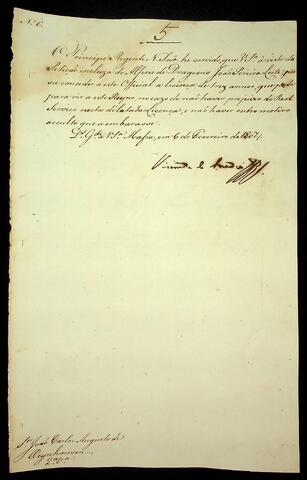 N.º 6.
5
O Principe Regente N. Snr. he servido, que V. S.ª á vista da
Petição incluza do Alferes de Dragoens João Pereira Leite, pos-
sa conceder a este Official a licença de trez annos, que pede
para vir a este Reyno, no cazo de não haver prejuizo do Real
Serviço nesta dilatada Licença, e não haver outro motivo
occulto que a embarasse.
D.s G.de a V. S.ª Mafra, em 6 de Fevereiro de 1807.
Visconde de Anadia
S.r João Carlos Augusto de
Oeynhausen